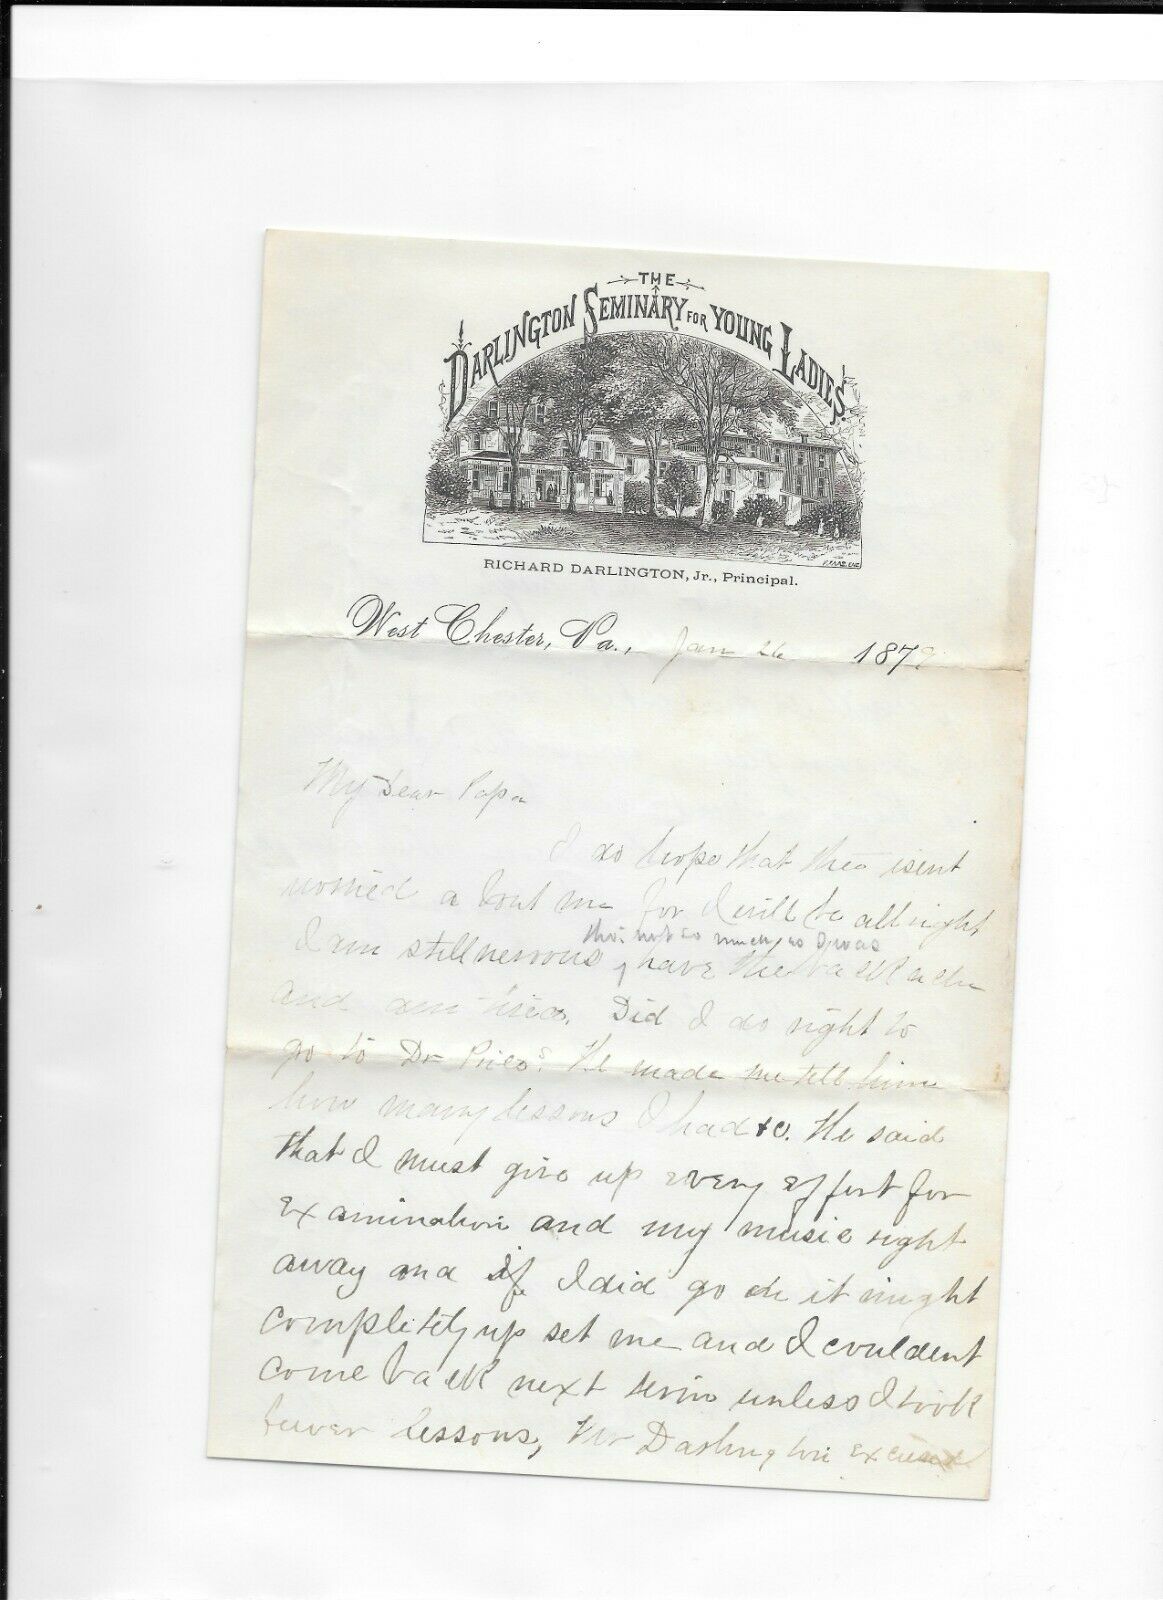 THE
DARLINGTON SEMINARY FOR YOUNG LADIES.
RICHARD DARLINGTON, Jr., Principal.
West Chester, Pa., Jan 26 1879
My Dear Papa
I do hope that thee isent
worried about me for I will be all right
tho' not so much so as I was
I am still nervous, have the back ache
and am tired. Did I do right to
go to Dr Prices? He made me tell him
how many lessons I had &c. He said
that I must give up every effort for
examination and my music right
away and if I did go on it might
completely up set me and I couldent
come back next term unless I took
fewer lessons, Mr Darlington excused